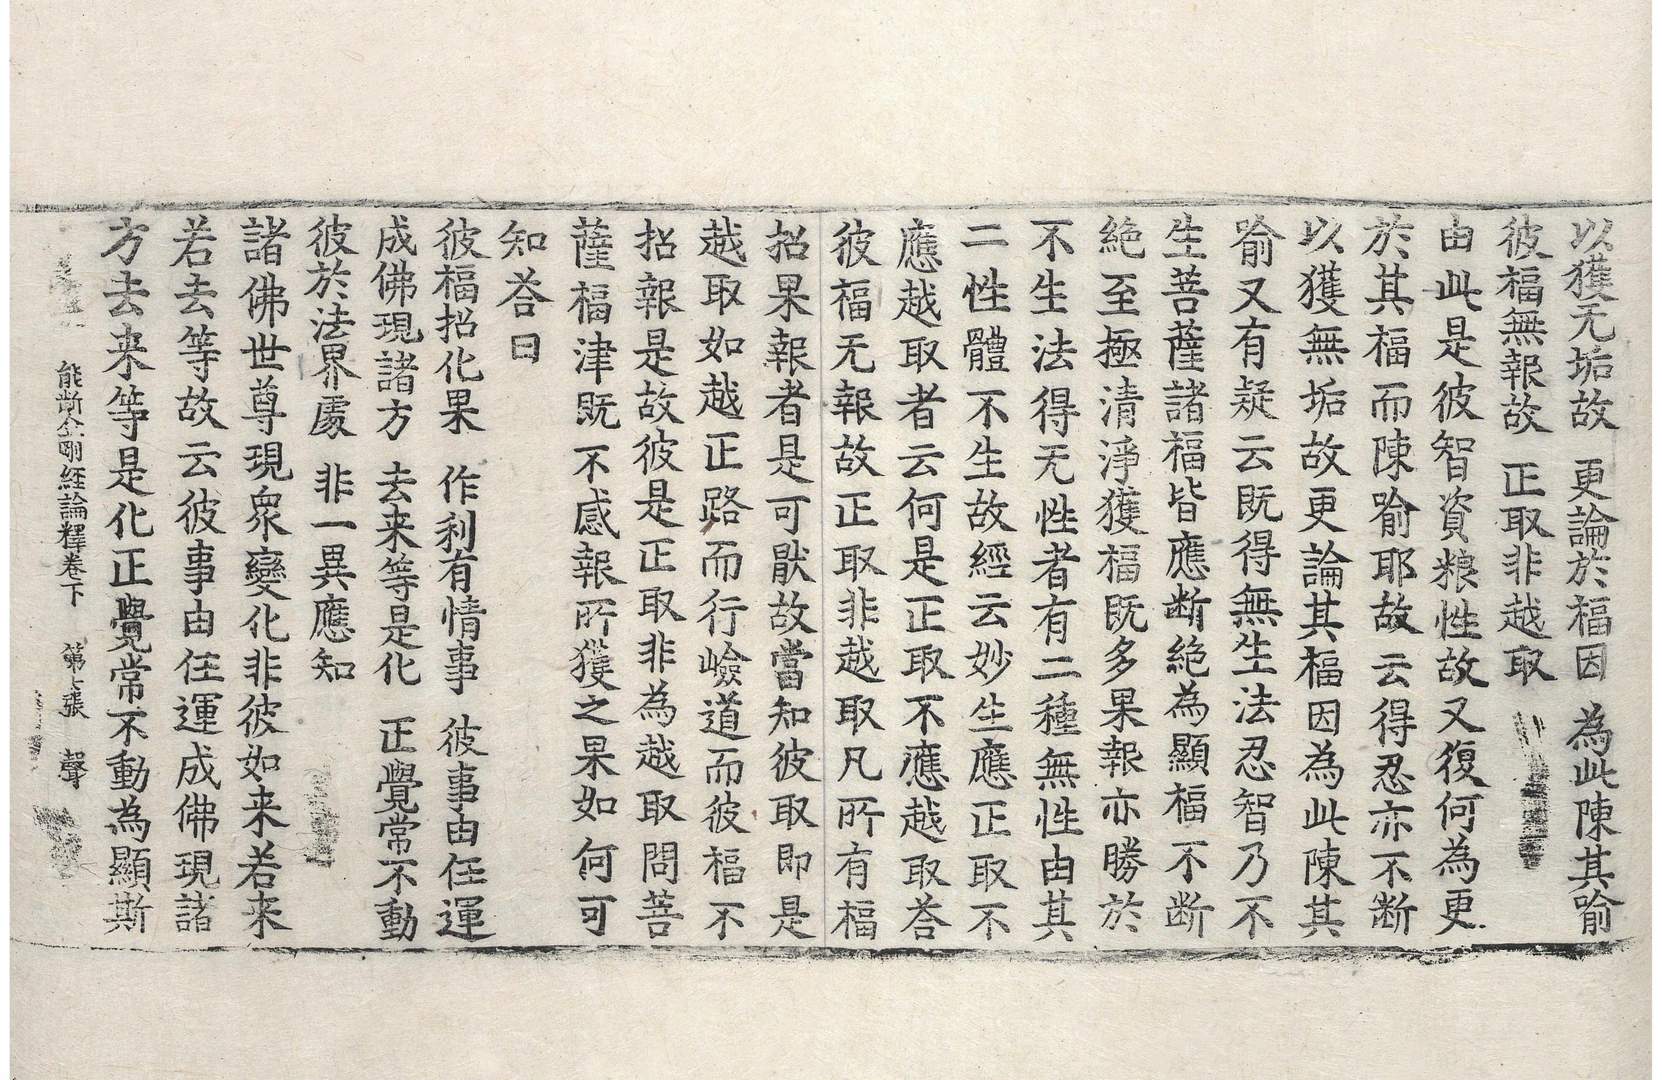 以獲无垢故 更論於福因 為此陳其喻
彼福無報故 正取非越取
由此是彼智資粮性故又復何為更
於其福而陳喻耶故云得忍亦不断
以獲無垢故更論其福因為此陳其
喻又有疑云既得無生法忍智乃不
生菩薩諸福皆應断絶為顯福不断
絶至極清淨獲福既多果報亦勝於
不生法得无性者有二種無性由其
二性體不生故經云妙生應正取不
應越取者云何是正取不應越取荅
彼福无報故正取非越取凡所有福
招果報者是可猒故當知彼取即是
越取如越正路而行嶮道而彼福不
招報是故彼是正取非為越取問菩
薩福津既不感報所獲之果如何可
知荅曰
彼福招化果 作利有情事 彼事由任運
成佛現諸方 去来等是化 正覺常不動
彼於法界處 非一異應知
諸佛世尊現衆變化非彼如来若来
若去等故云彼事由任運成佛現諸
方去来等是化正覺常不動為顯斯
能断金剛経論釋卷下 第七張 聲